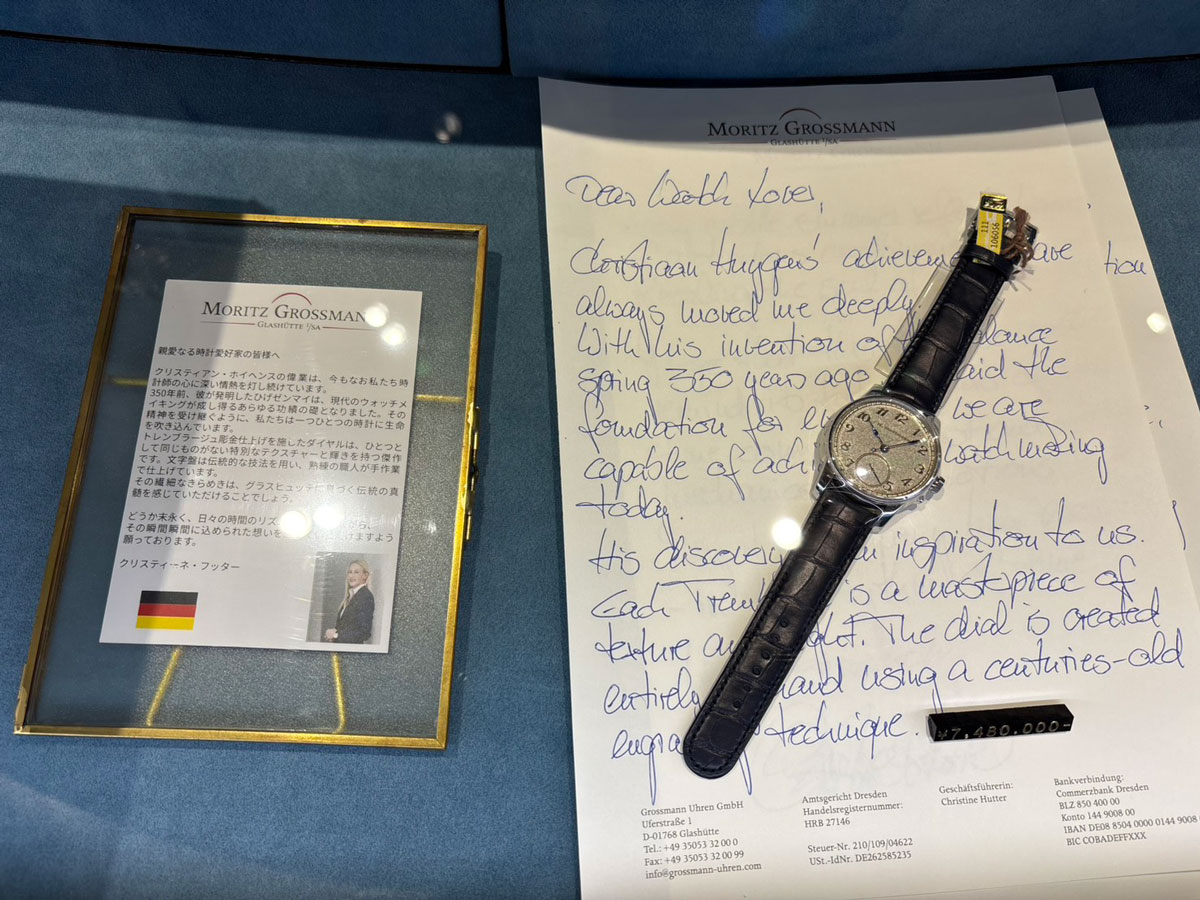 MORITZ GROSSMANN
GLASHÜTTE I/SA
親愛なる時計愛好家の皆様へ
クリスティアン・ホイヘンスの偉業は、今もなお私たち時
計師の心に深い情熱を灯し続けています。
350年前、彼が発明したひげゼンマイは、現代のウォッチメ
イキングが成し得るあらゆる功績の礎となりました。その
精神を受け継ぐように、私たちは一つひとつの時計に生命
を吹き込んでいます。
トレンブラージュ彫金仕上げを施したダイヤルは、ひとつと
して同じものがない特別なテクスチャーと輝きを持つ傑作
です。文字盤は伝統的な技法を用い、熟練の職人が手作業
で仕上げています。
その繊細なきらめきは、グラスヒュッテに づく伝統の真
髄を感じていただけることでしょう。
どうか末永く、日々の時間のリズ ら、
その瞬間瞬間に込められた想いを けますよう
願っております。
クリスティーネ・フッター
MORITZ GROSSMANN
GLASHÜTTE I/SA
Dear Watch Lover,
Christiaan Huygens' achievem have
always moved me deeply.
With his invention of balance
spring 350 years ago laid the
foundation for we are
capable of watchmaking
today.
His discovery inspiration to us.
Each is a masterpiece of
texture The dial is created
entirely hand using a centuries-old
technique.
tion
111
106056
¥7,480,000-
Grossmann Uhren GmbH
Uferstraße 1
D-01768 Glashütte
Tel.: +49 35053 32 00 0
Fax: +49 35053 32 00 99
info@grossmann-uhren.com
Amtsgericht Dresden
Handelsregisternummer:
HRB 27146
Steuer-Nr. 210/109/04622
USt.-IdNr. DE262585235
Geschäftsführerin:
Christine Hutter
Bankverbindung:
Commerzbank Dresden
BLZ 850 400 00
Konto 144 9008 00
IBAN DE08 8504 0000 0144 9008
BIC COBADEFFXXX